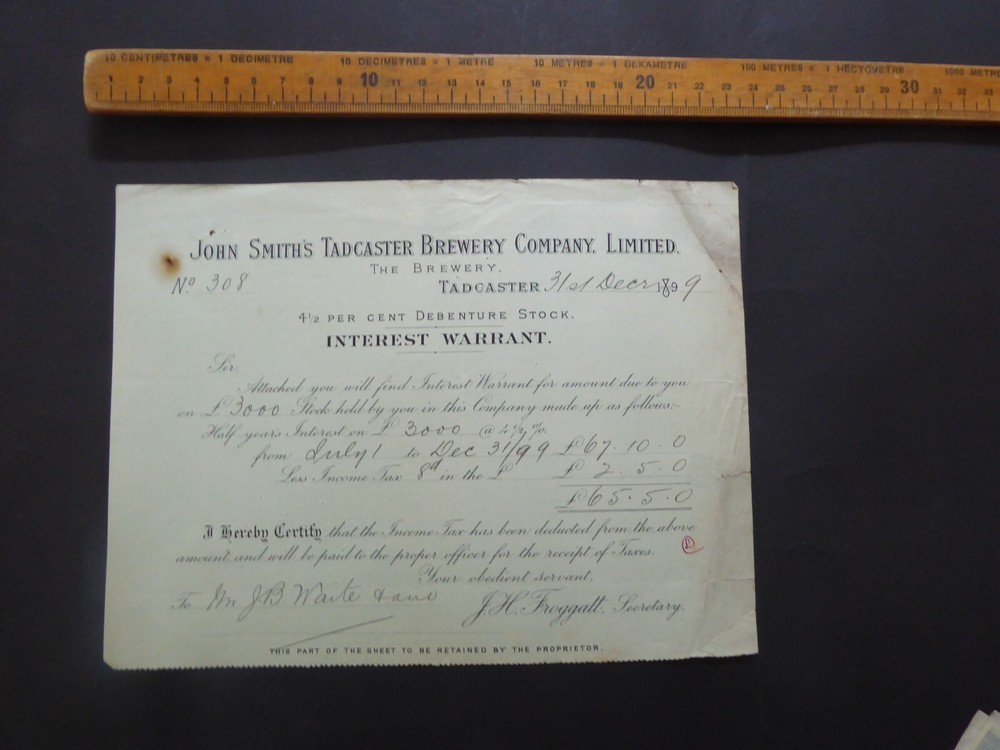 10 CENTIMETRES = 1 DECIMETRE 10 DECIMETRES = 1 METRE 10 METRES = 1 DEKAMETRE 100 METRES = 1 HECTOMETRE 1000 METRE
1 2 3 4 5 6 7 8 9 10 11 12 13 14 15 16 17 18 19 20 21 22 23 24 25 26 27 28 29 30 31 32 33
JOHN SMITH'S TADCASTER BREWERY COMPANY, LIMITED.
THE BREWERY,
No 308
TADCASTER 31st Decr 1899
4½ PER CENT DEBENTURE STOCK.
INTEREST WARRANT.
Sir,
Attached you will find Interest Warrant for amount due to you
on £ 3000 Stock held by you in this Company made up as follows:-
Half year's Interest on £ 3000 @ 4½%
from July 1 to Dec 31/99 £67.10.0
Less Income Tax 8d in the £ £ 2.5.0
£65.5.0
I Hereby Certify that the Income Tax has been deducted from the above
amount and will be paid to the proper officer for the receipt of Taxes.
Your obedient servant,
To Mr J.B. Waite
J.H. Froggatt, Secretary.
THIS PART OF THE SHEET TO BE RETAINED BY THE PROPRIETOR.